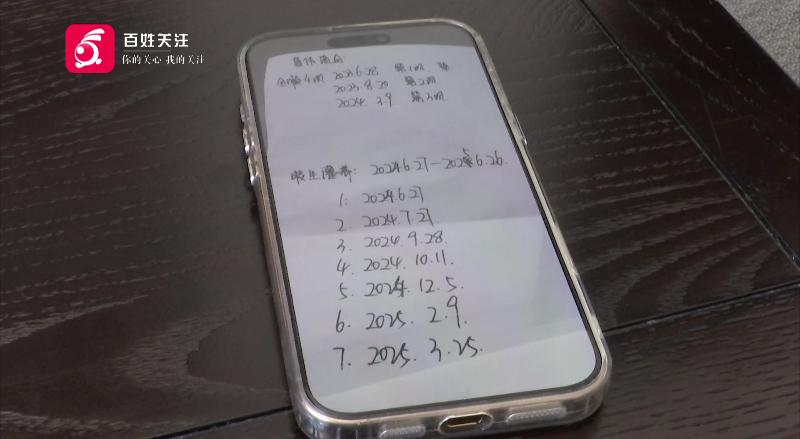 百姓关注
你的关心 我的关注
2023.6.28. 第1次
2023.8.20 第2次
2024. 3.9 第3次
2024.6.27—2025.6.26.
1. 2024.6.27
2. 2024.7.27.
3. 2024.9.28.
4. 2024.10.11.
5. 2024.12.5.
6. 2025. 2.9.
7. 2025. 3.25.